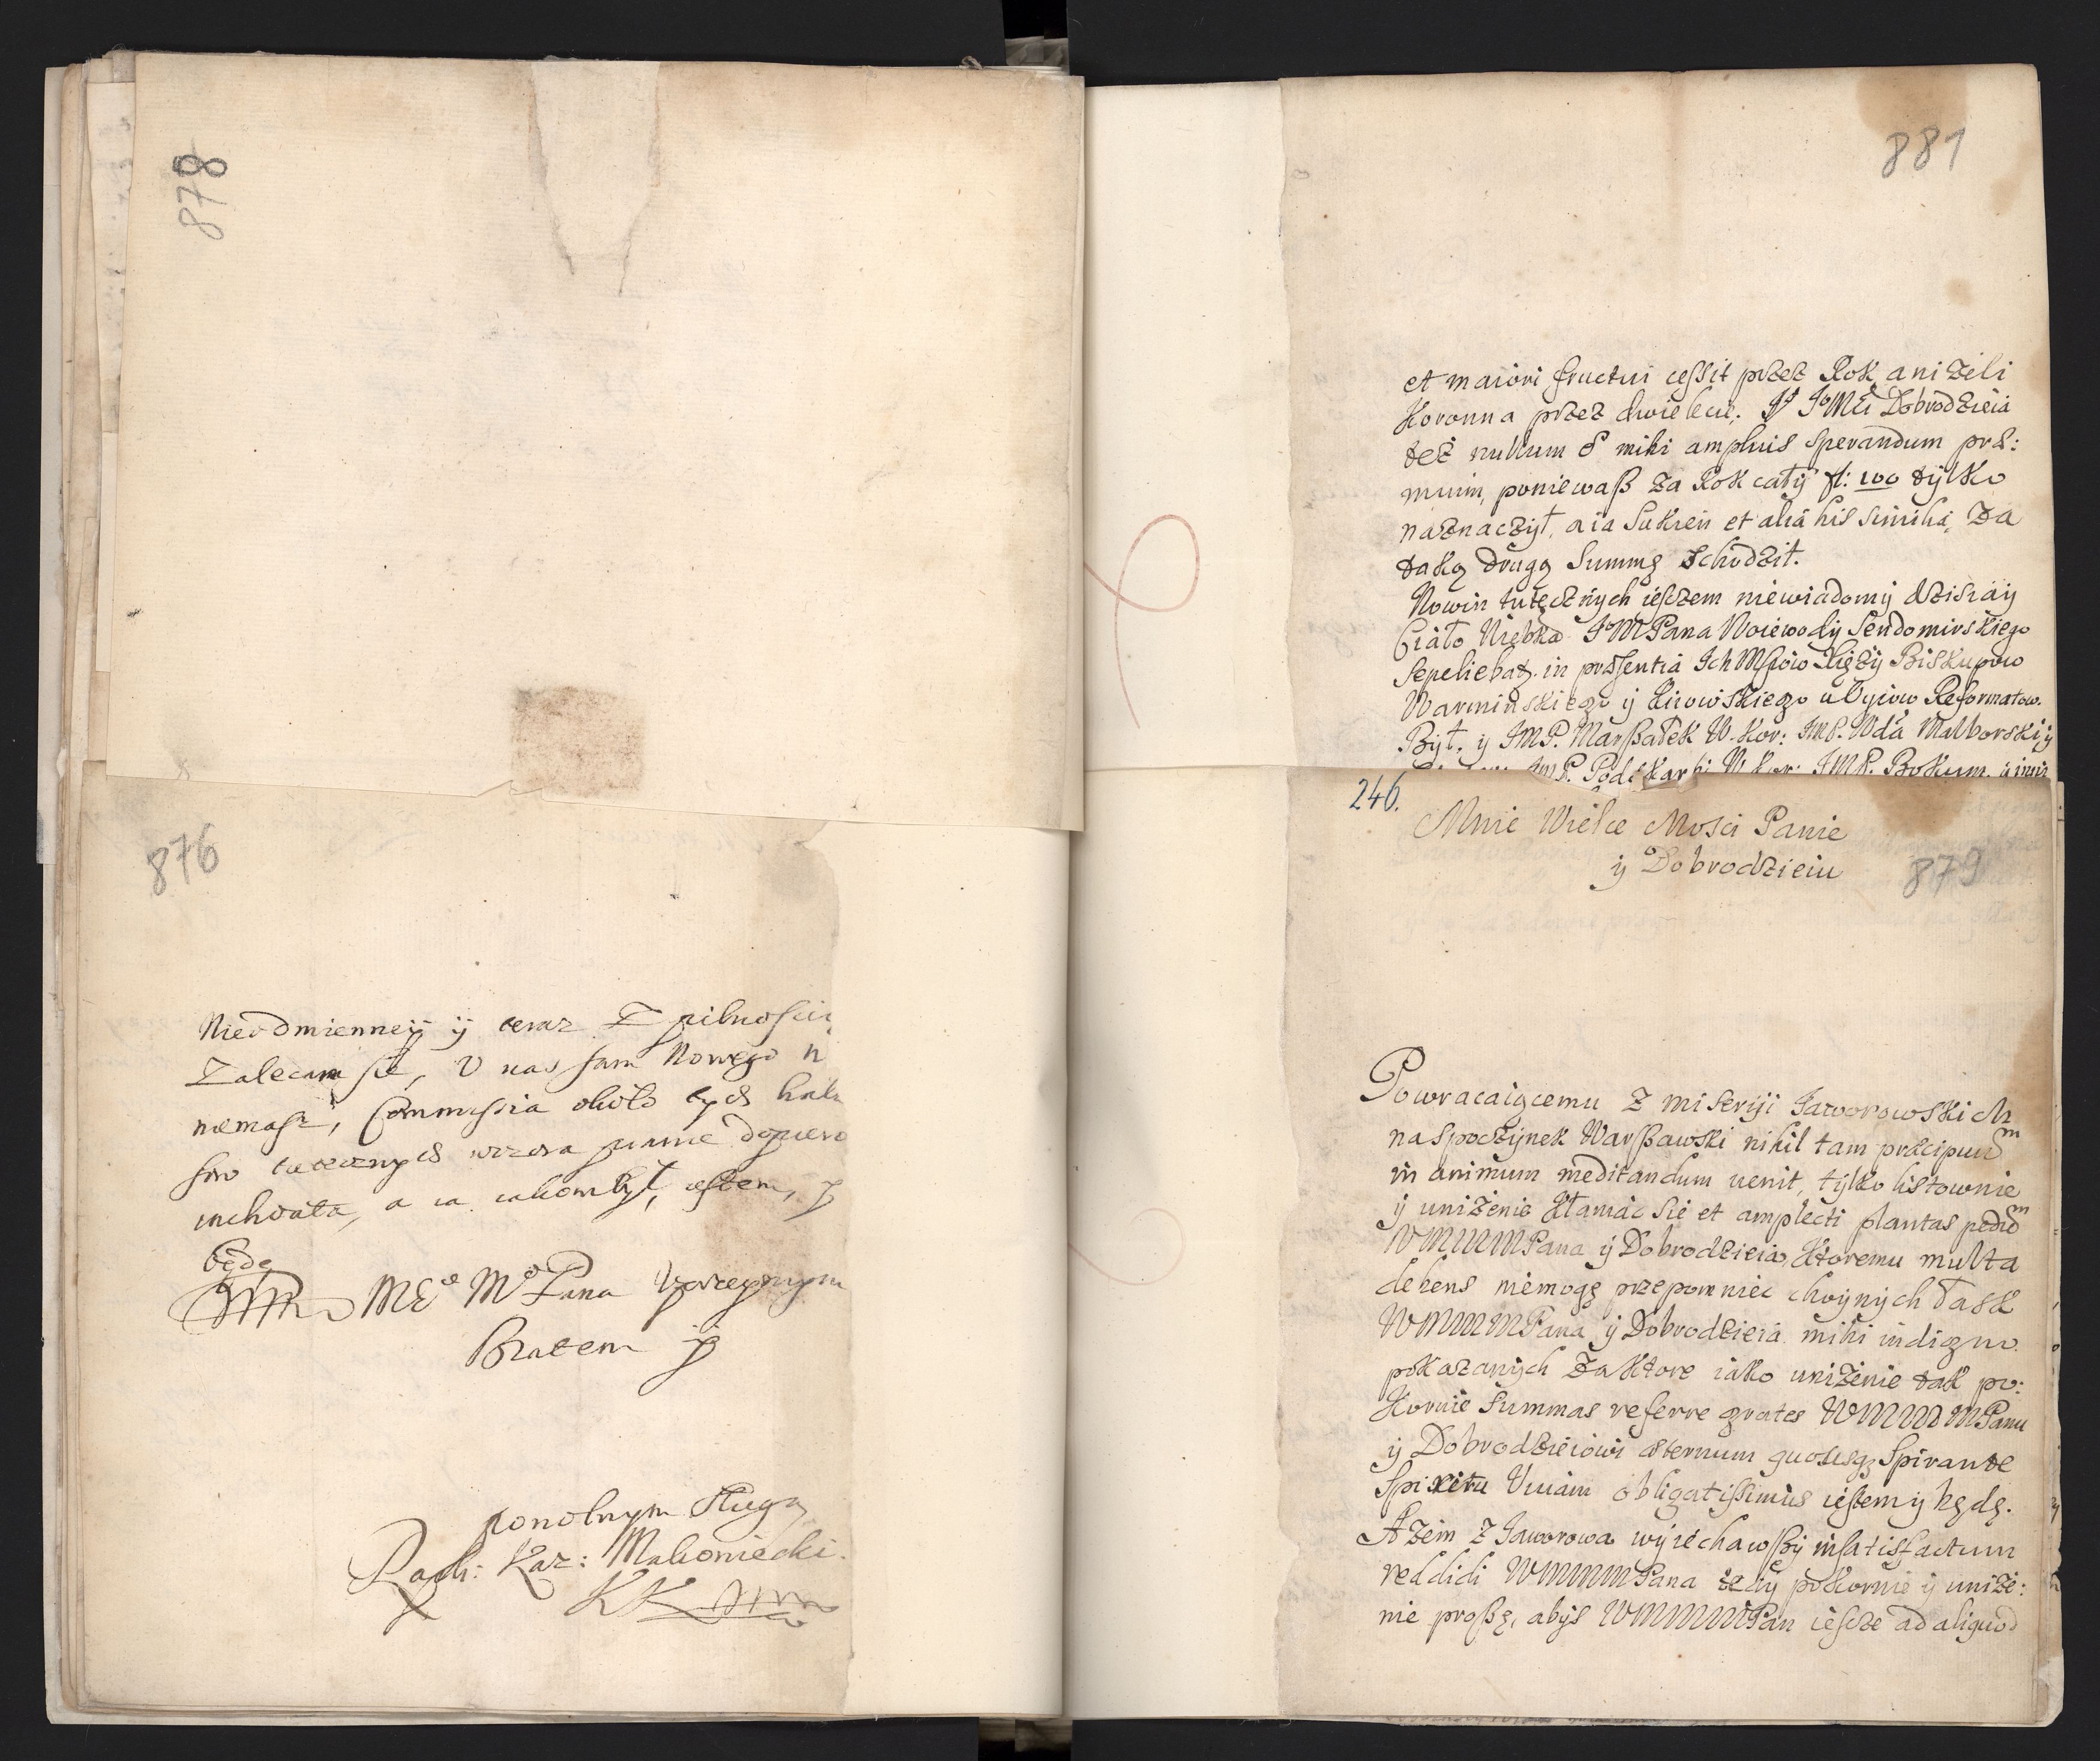 878
876
Nieodmienney ÿ teraz Z pilnoscią
Zalecam się, U nas sam Nowego n
niemasz, Commissia około tych
tutecznych wczora
inchoata, a ia iakom był, iestem, y
będę
MPana
Bratem y
powolnym Sługą
Kaz: Makoniecki.
881
et maiori fructui cessit przez Rok aniżeli
Koronna przez dwie lecie. JoMći Dobrodzieia
też nullum mihi amplius sperandum præ:
mium, poniewaß za Rok całÿ fl: 100 tÿlko
naznaczÿł, a ia Sukień et alia his similia, za
taką drugą Summę schodził.
Nowin tutecznych ieszczem niewiadomÿ dzisiaÿ
Ciało JoMPana Woiewodÿ Sendomirskiego
sepeliebat. in præsentia Ich Mściow Xiężÿ Biskupow
Warminskiego ÿ Kiiowskiego u Oyców Reformatow.
Bÿł, ÿ JMP. Marßałek W. Kor: JMP. Wda Malborski ÿ
JMP. Podskarbi W. Kor: JMP. Bokum, ÿ innÿ
246.
Mnie Wielce Mosci Panie
ÿ Dobrodzieiu
879
Powracaiącemu z miseriji Jaworowskich
na spoczÿnek Warßawski nihil tam præcipuum
in animum meditandum uenit, tÿlko listownie
ÿ uniżenie kłaniać sie et amplecti plantas pedum
WMMMPana ÿ Dobrodzieia, ktoremu multa
debens niemogę przepomniec choÿnÿch łask
WMMMPana ÿ Dobrodzieia mihi indigno
pokazanÿch za ktore iako uniżenie tak po:
kornie summas referre grates WMMMPanu
ÿ Dobrodzieiowi æternum quousq Spirante
Spiritu Uuiam obligatissimus iestem ÿ będę.
A żem z Jaworowa wÿiechawßÿ insatisfactum
reddidi WMMMPana tedÿ pokornie ÿ uniże:
nie proßę, abÿs WMMMPan iescze ad aliquod